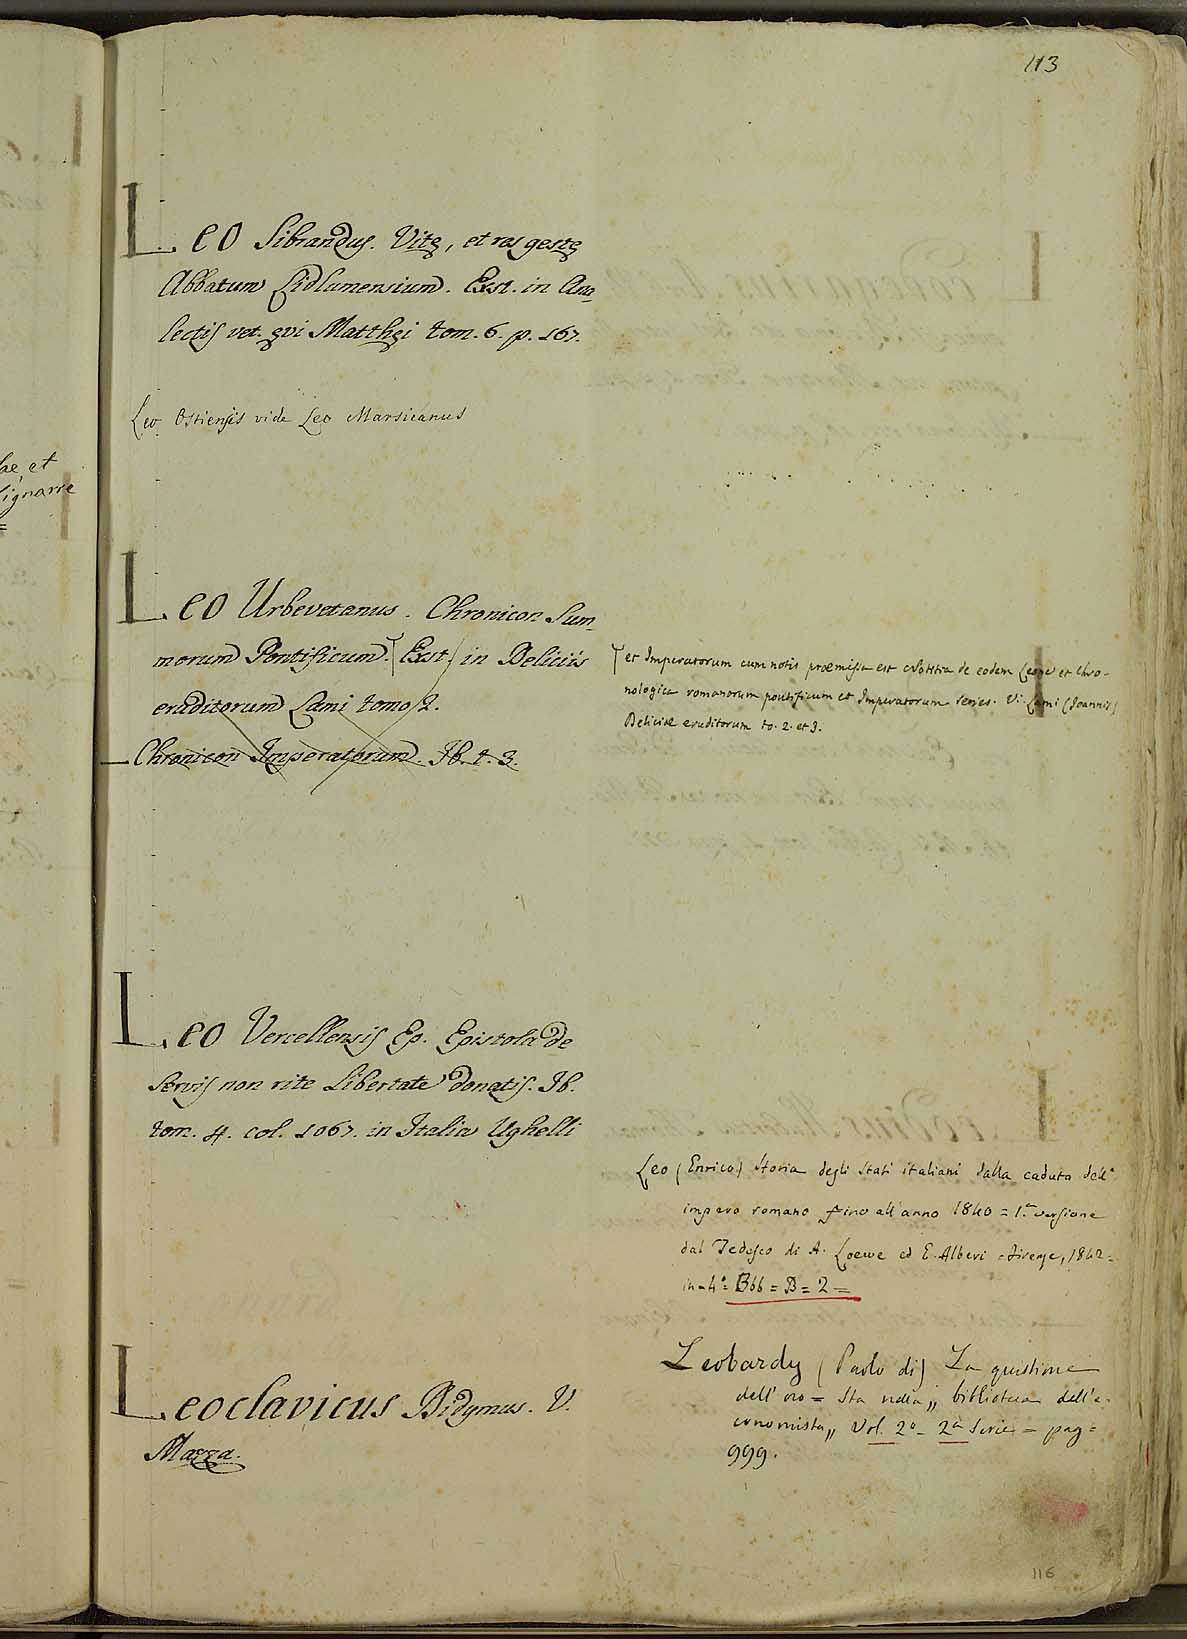 113
Leo Sibrandus. Vitę, et res gestę
Abbatum Lidlumensium. Exst. in Ana
lectis vet. ęvi Matthęi tom. 6. p. 167.
Leo Ostiensis vide Leo Marsicanus
lae et
Leo Urbevetanus. Chronicon Sum
morum Pontificum. (Exst.) in Deliciis
eruditorum Lami tomo 2.
Chronicon Imperatorum. Ib. t. 3.
et Imperatorum cum notis praemissa est Notitia de eodem Leone et Chro-
nologica romanorum pontificum et Imperatorum series. V. Lami (Joannis)
Deliciae eruditorum to. 2. et 3.
Leo Vercellensis Ep. Epistola de
Servis non rite Libertate donatis. Ib.
tom. 4. col. 1067. in Italia Ughelli
Leo (Enrico) Storia degli Stati italiani dalla caduta dell'
impero romano fino all'anno 1840 = 1.a versione
dal Tedesco di A. Loewe ed E. Alberi = Firenze, 1842 =
in-4° = Bbb = B = 2 =
Leobardy (Paolo di) La quistione
dell'oro = Sta nella „ biblioteca dell'e-
conomista „ Vol. 2° - 2a Serie = pag =
999.
Leoclavicus Didymus. V.
Mazza.
116